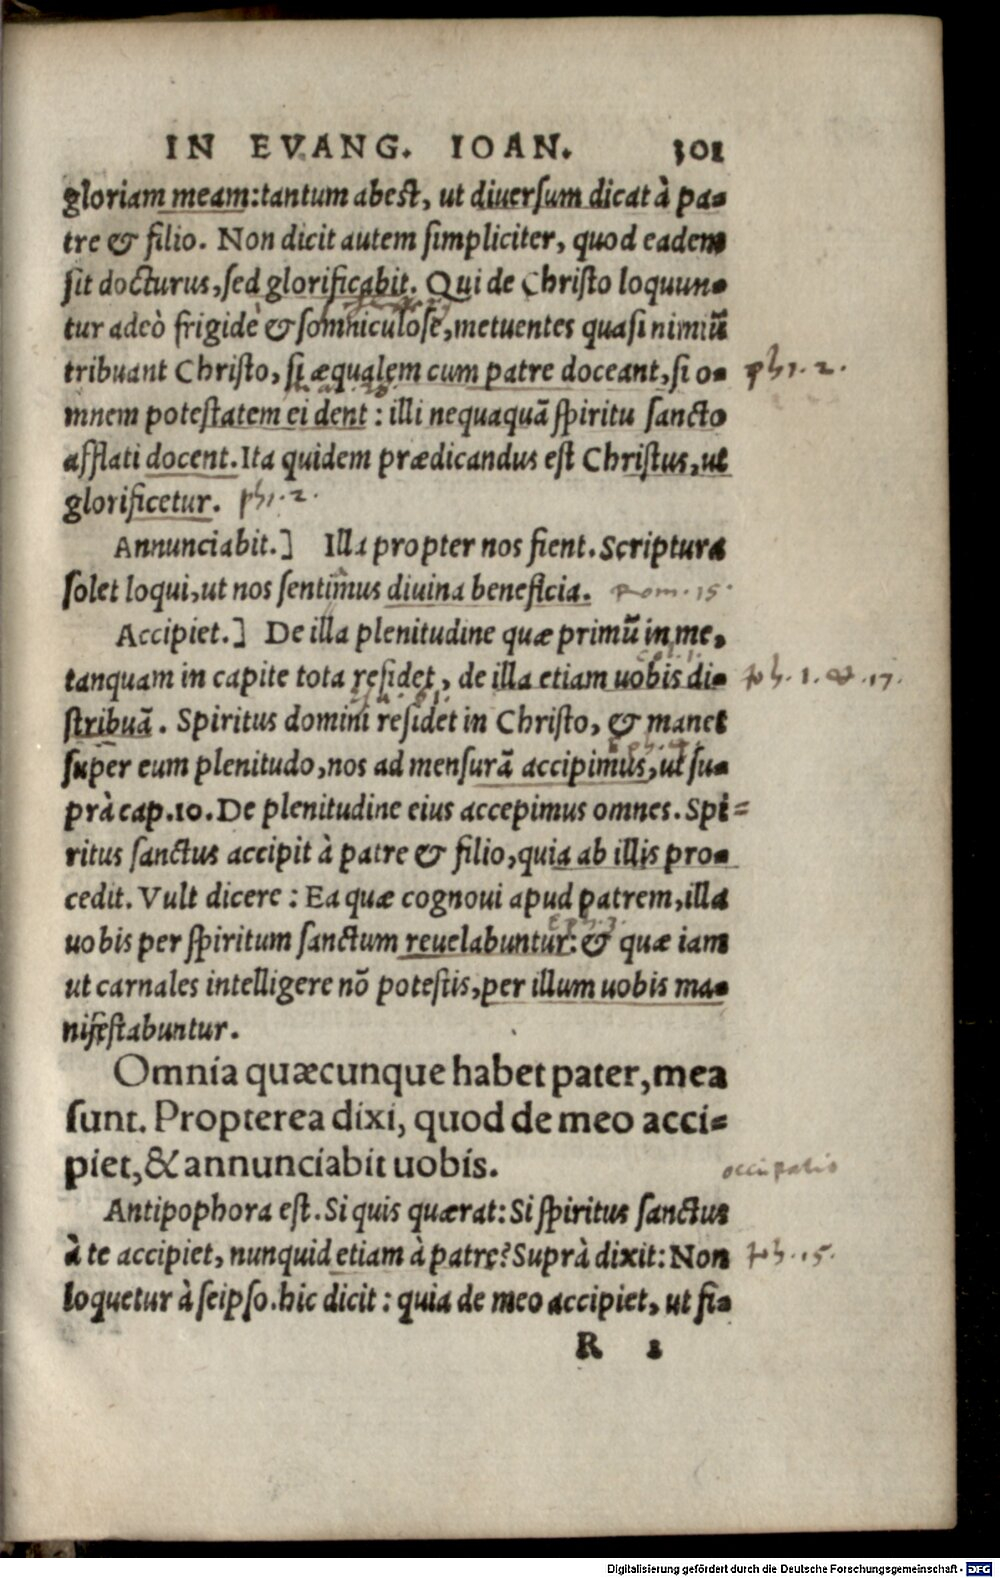 IN EVANG. IOAN. 301
gloriam meam: tantum abest, ut diuersum dicat à pa-
tre & filio. Non dicit autem simpliciter, quod eadem
sit docturus, sed glorificabit. Qui de Christo loquun-
tur adeò frigidè & somniculosè, metuentes quasi nimiũ
tribuant Christo, si æqualem cum patre doceant, si o-
phi. 2.
mnem potestatem ei dent: illi nequaquã spiritu sancto
afflati docent. Ita quidem prædicandus est Christus, ut
glorificetur. phi. 2.
Annunciabit.] Illa propter nos fient. Scriptura
solet loqui, ut nos sentimus diuina beneficia. Rom. 15.
Accipiet.] De illa plenitudine quæ primũ in me,
tanquam in capite tota residet, de illa etiam uobis di-
stribuã. Spiritus domini residet in Christo, & manet
super eum plenitudo, nos ad mensurã accipimus, ut su-
prà cap. 10. De plenitudine eius accepimus omnes. Spi=
ritus sanctus accipit à patre & filio, quia ab illis pro-
cedit. Vult dicere: Ea quæ cognoui apud patrem, illa
Eph. 3.
uobis per spiritum sanctum reuelabuntur: & quæ iam
ut carnales intelligere nõ potestis, per illum uobis ma-
nifestabuntur.
Omnia quæcunque habet pater, mea
sunt. Propterea dixi, quod de meo acci=
piet, & annunciabit uobis.
occupatio
Antipophora est. Si quis quærat: Si spiritus sanctus
à te accipiet, nunquid etiam à patre? Suprà dixit: Non
loquetur à seipso. hic dicit: quia de meo accipiet, ut fi-
R 2
Digitalisierung gefördert durch die Deutsche Forschungsgemeinschaft - DFG